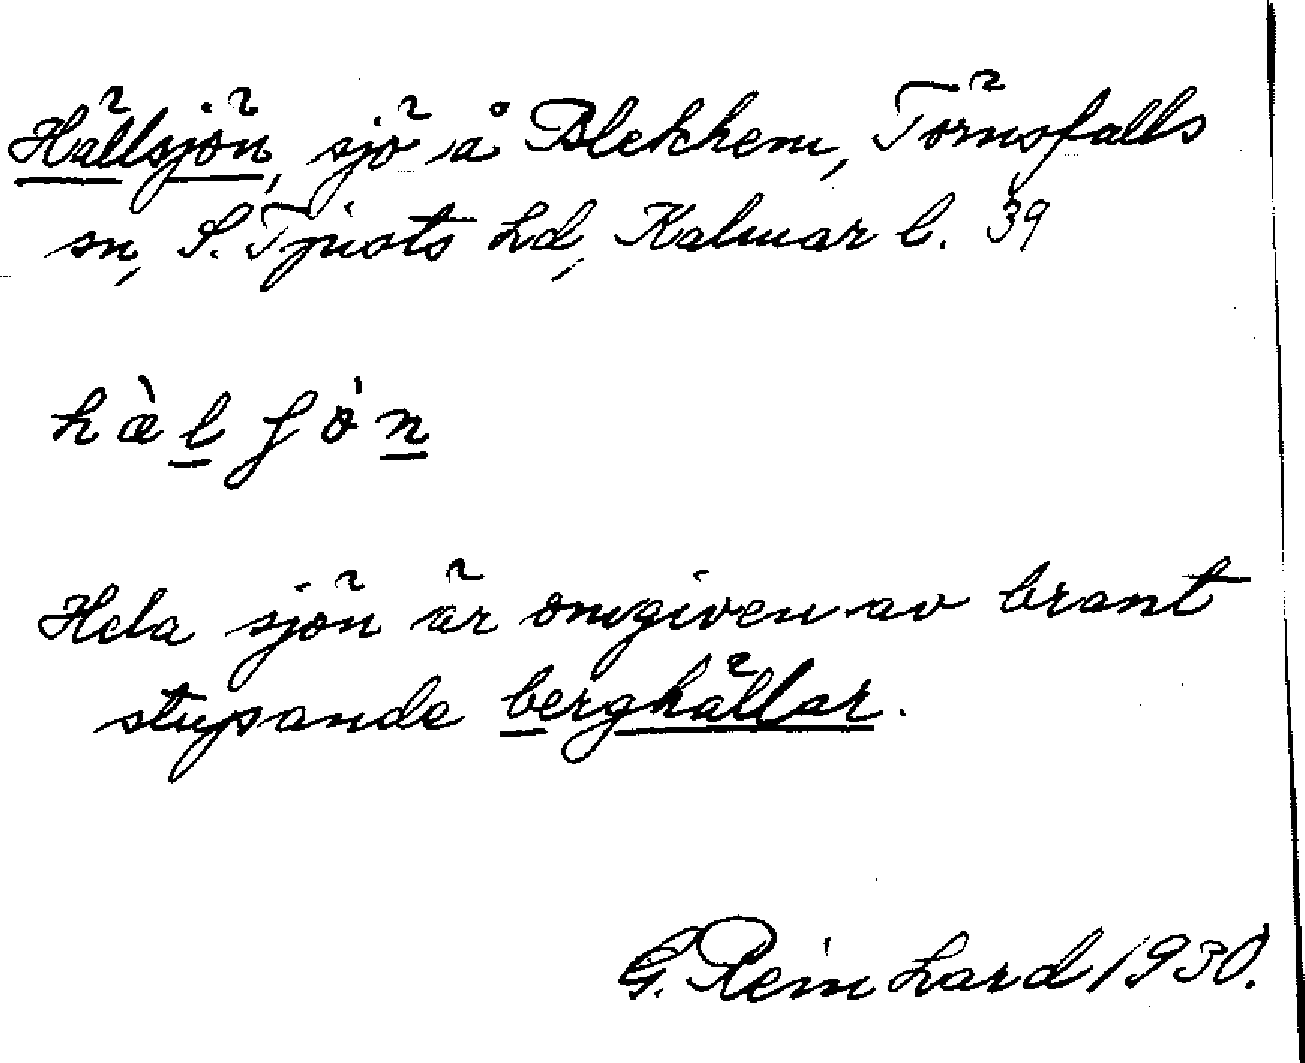 Hällsjön, sjö å Blekhem, Törnsfalls
sn, S. Tjusts hd, Kalmar l. 39
hæ̀l ʃön
Hela sjön är omgiven av brant
stupande berghällar.
G. Reinhard 1930.